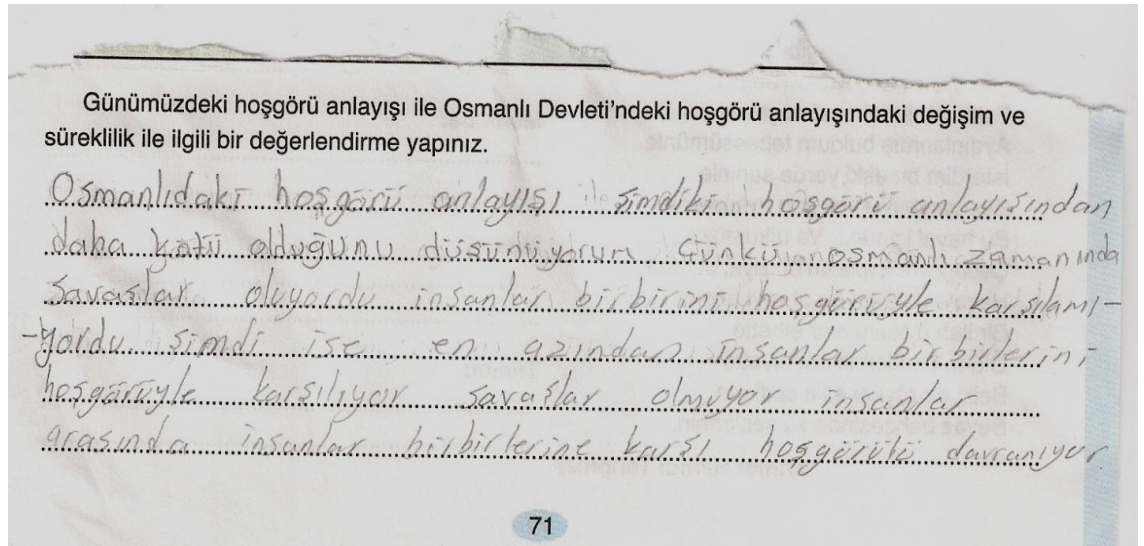 Günümüzdeki hoşgörü anlayışı ile Osmanlı Devleti'ndeki hoşgörü anlayışındaki değişim ve
süreklilik ile ilgili bir değerlendirme yapınız.
Osmanlıdaki hoşgörü anlayışı ile şimdiki hoşgörü anlayışından
daha kötü olduğunu düşünüyorum Çünkü osmanlı zamanında
Savaşlar oluyordu insanlar birbirini hoşgörüyle karşılamı-
-yordu şimdi ise en azından insanlar birbirlerini
hoşgörüyle karşılıyor savaşlar olmuyor insanlar
arasında insanlar birbirlerine karşı hoşgörülü davranıyor
71